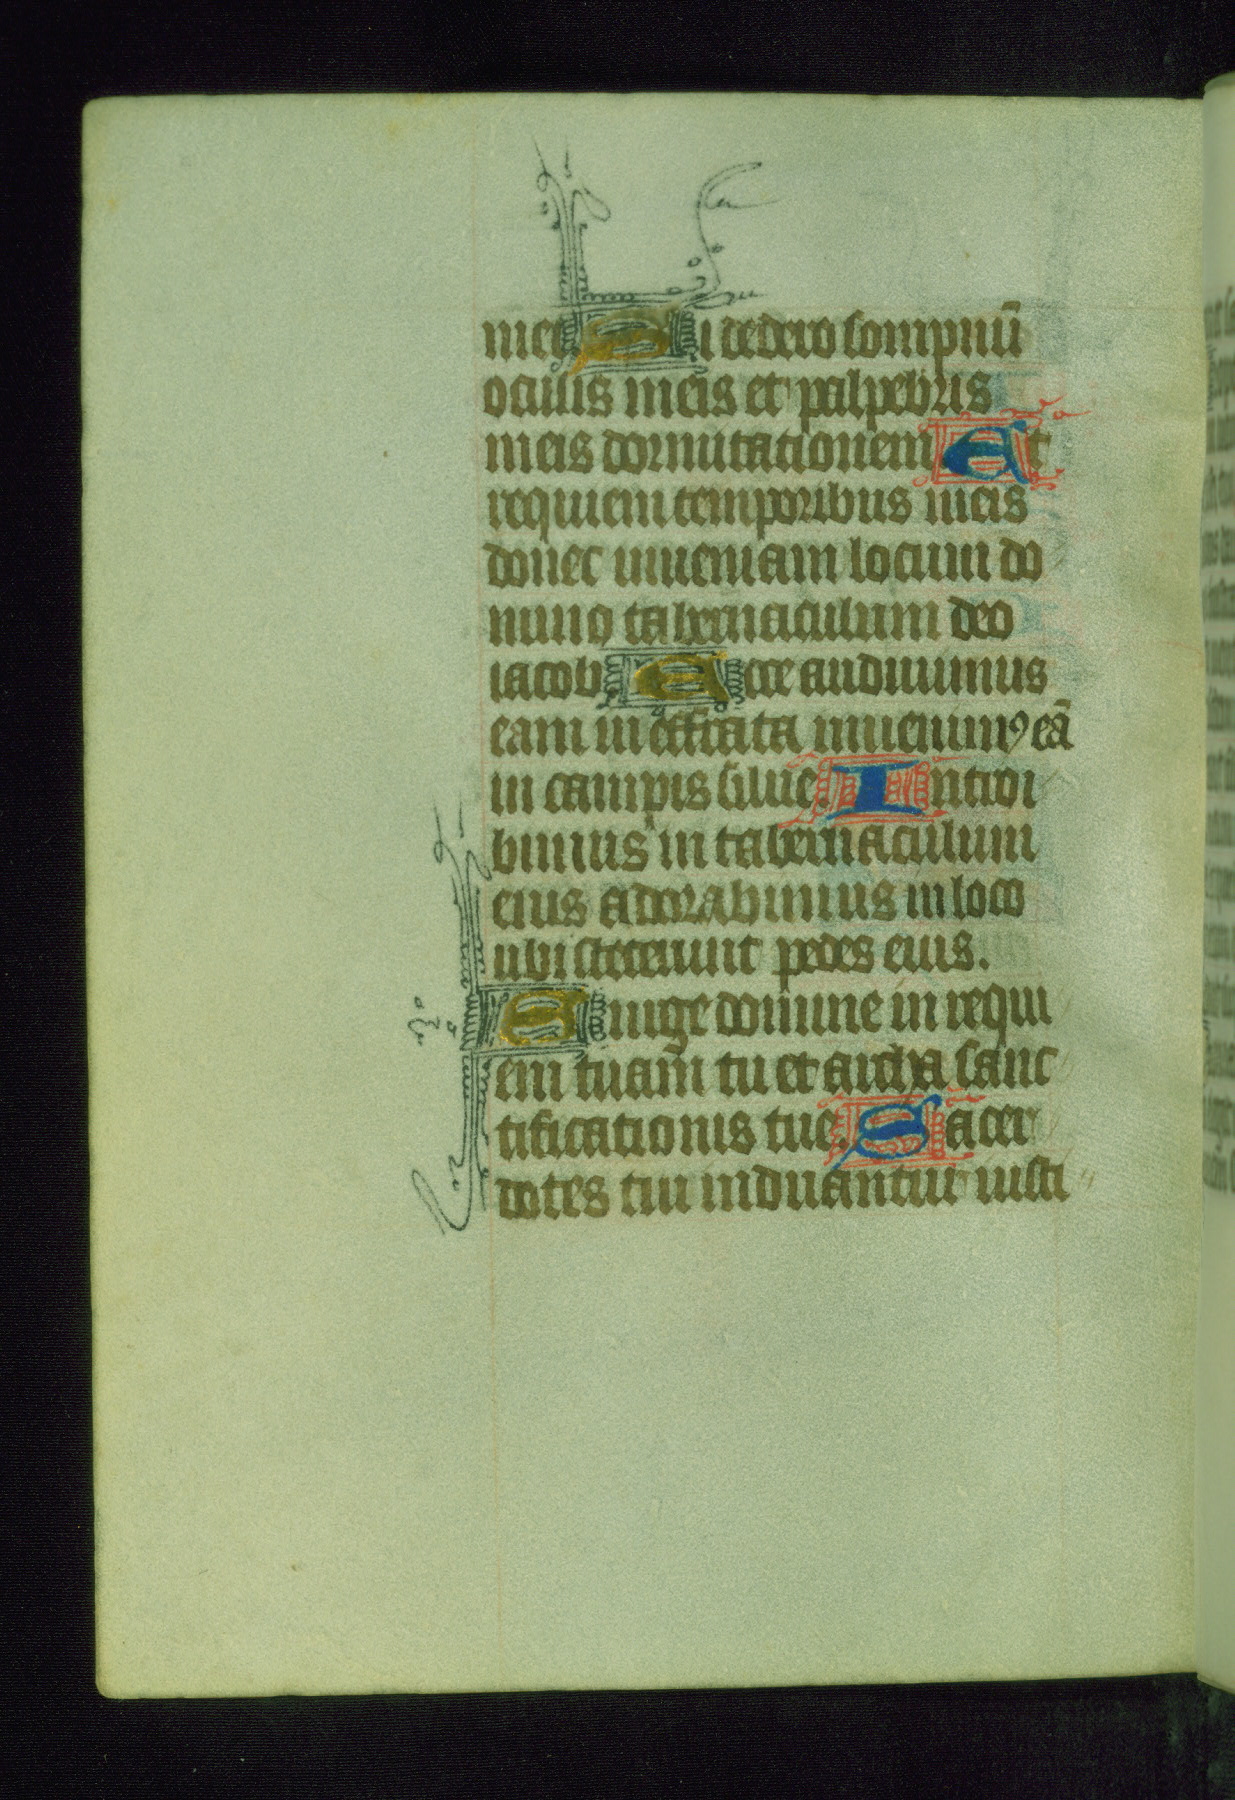 mei Si dedero sompnū
oculis meis et palpebris
meis dormitationem Et
requiem temporibus meis
donec inueniam locum do
mino tabernaculum deo
iacob Ecce audiuimus
eam in effrata inuenimꝯ eā
in campis silue. Introi
bimus in tabernaculum
eius adorabimus in loco
ubi steterunt pedes eius.
Surge domine in requi
em tuam tu et archa sanc
tificationis tue. Sacer
dotes tui induantur iusti